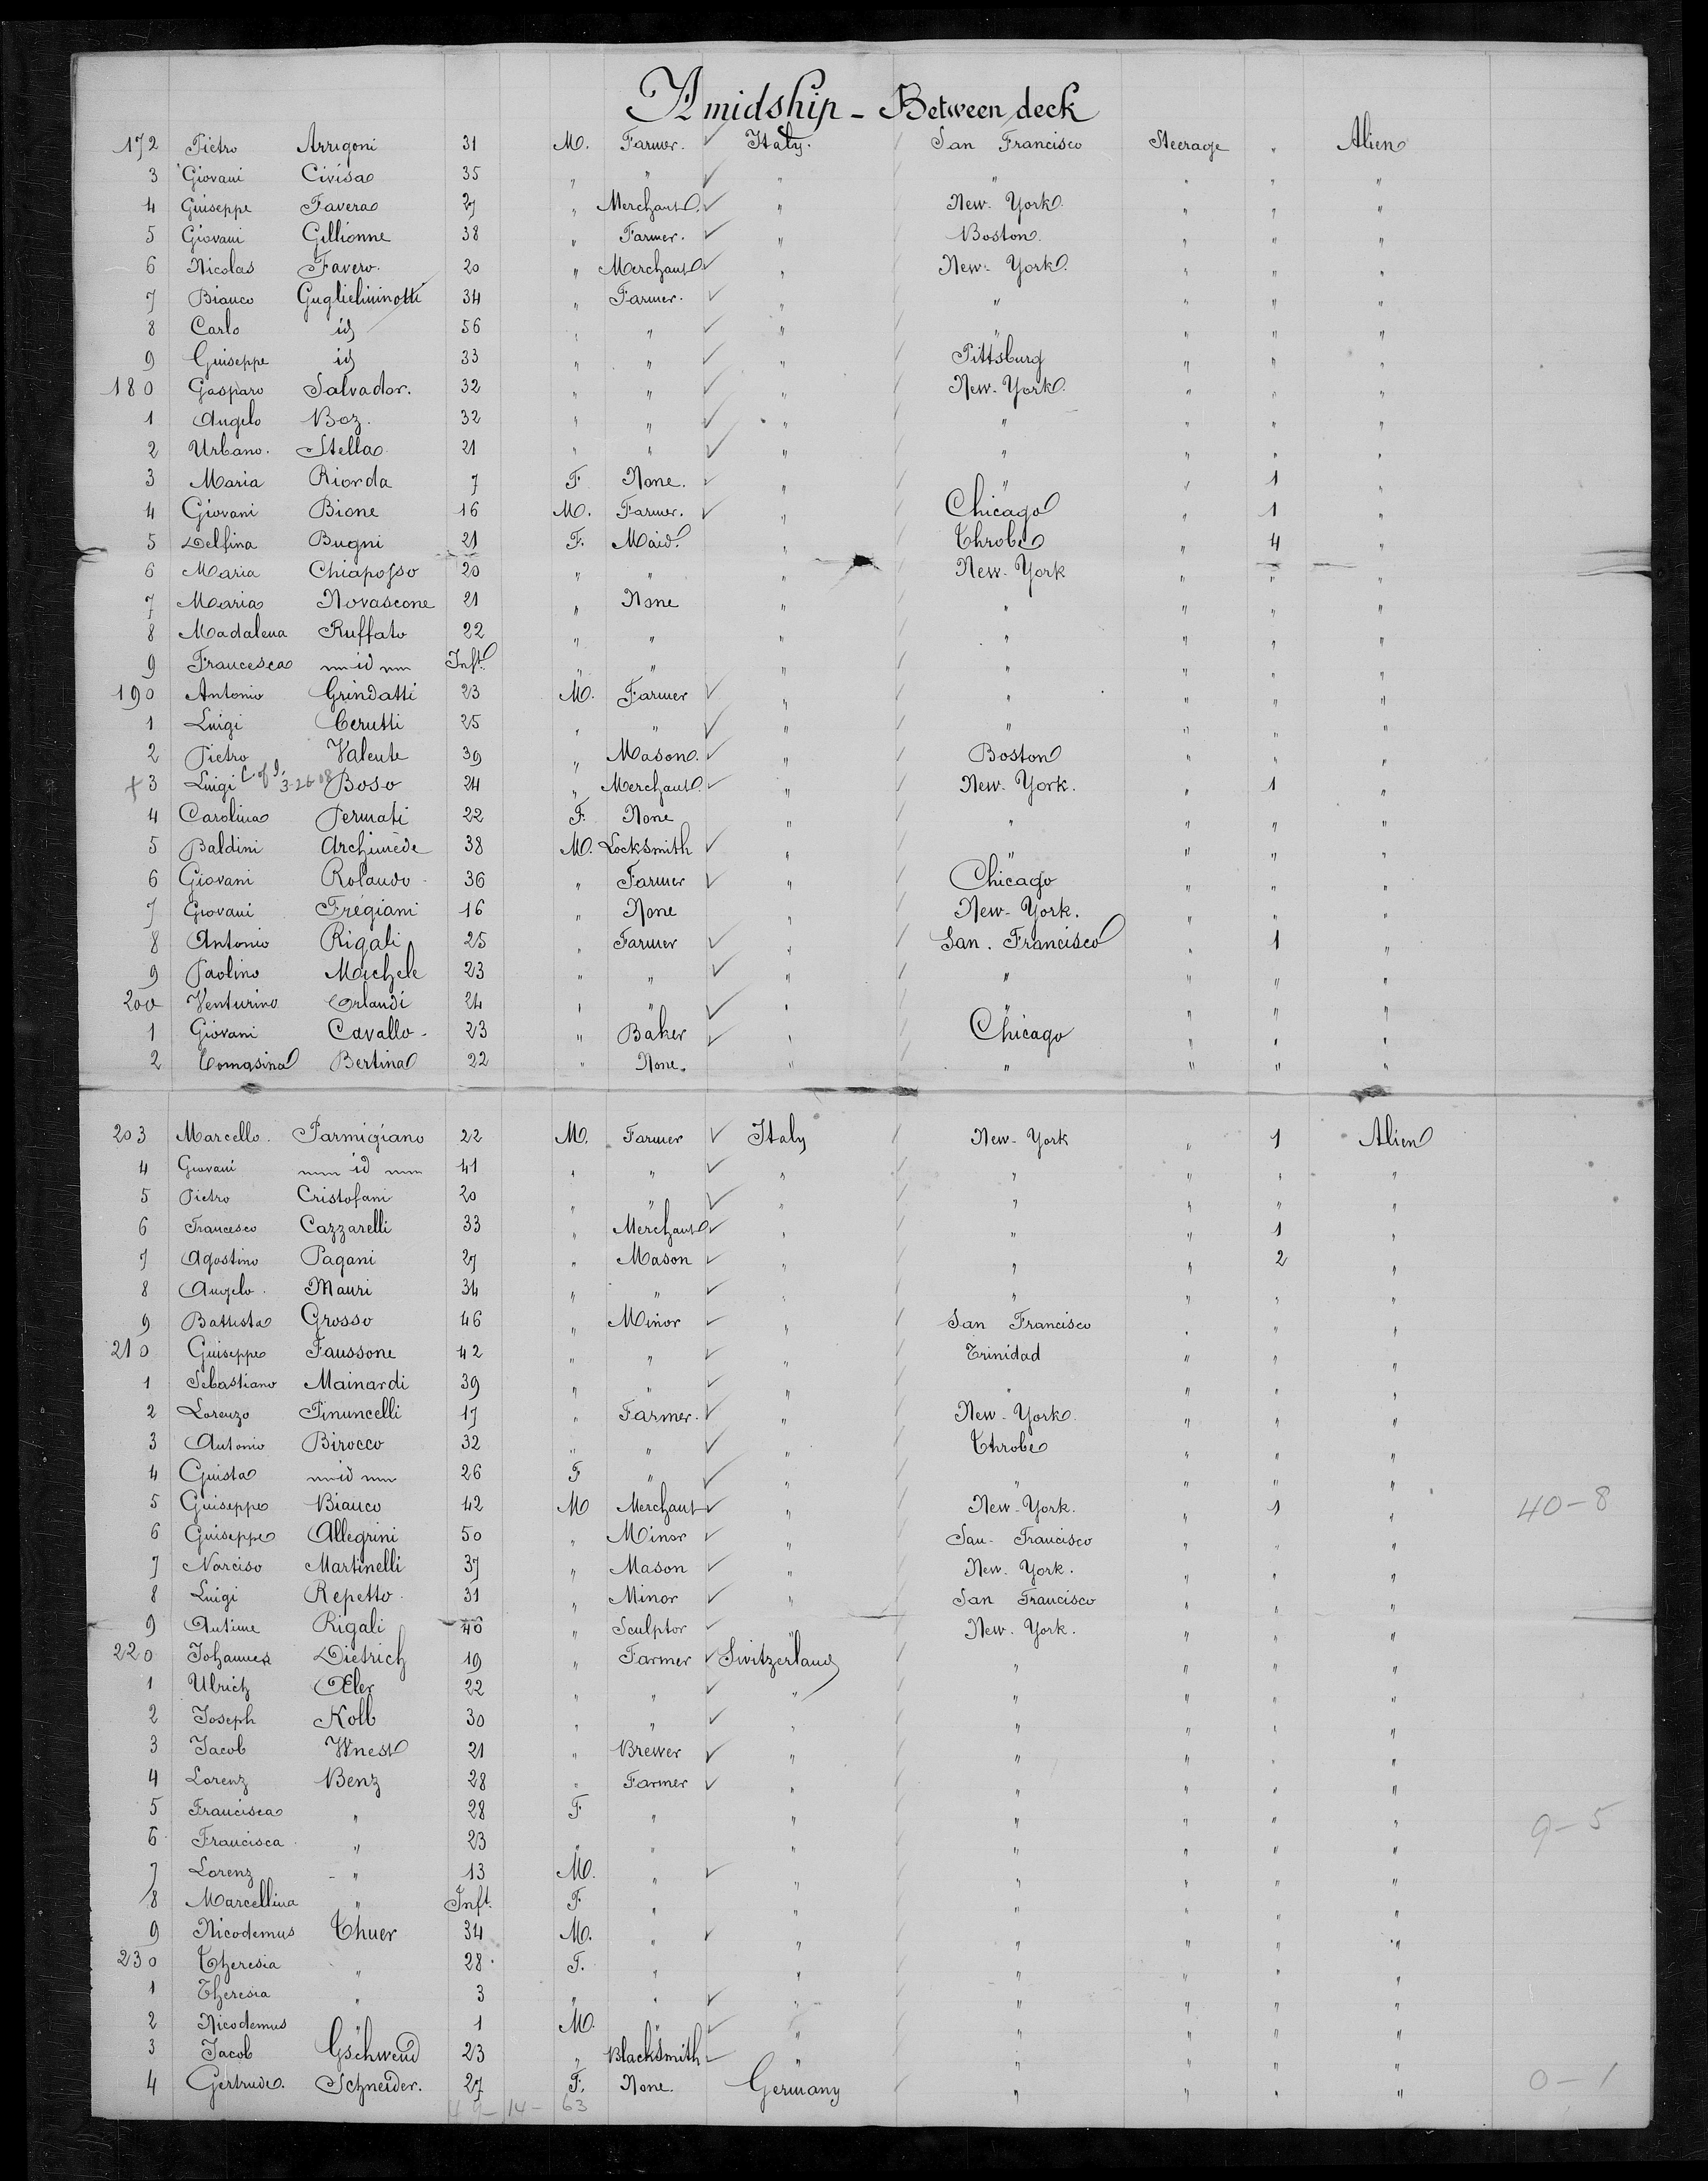 Amidship - Between deck
172 Pietro Arrigoni 31 M. Farmer. ✓ Italy. / San Francisco Steerage " Alien
3 Giovani Civisa 35 " " ✓ " / " " " "
4 Guiseppe Favera 27 " Merchant. ✓ " / New-York " " "
5 Giovani Gillionne 38 " Farmer. ✓ " / Boston " " "
6 Nicolas Favero. 20 " Merchant ✓ " / New-York. " " "
7 Bianco Guglielminotti 34 " Farmer. ✓ " / " " " "
8 Carlo id 56 " " ✓ " / " " " "
9 Guiseppe id 33 " " ✓ " / Pittsburg " " "
180 Gasparo Salvador. 32 " " ✓ " / New-York. " " "
1 Angelo Boz. 32 " " ✓ " / " " " "
2 Urbano. Stella 21 " " ✓ " / " " " "
3 Maria Riorda 7 F. None. ✓ " / " " 1 "
4 Giovani Bione 16 M. Farmer. ✓ " / Chicago " 1 "
5 Delfina Bugni 21 F. Maid. " / Throbe " 4 "
6 Maria Chiaposso 20 " " " / New-York " " "
7 Maria Novascone 21 " None " / " " " "
8 Madalena Ruffato 22 " " " / " " " "
9 Francesca id Inft. " " " / " " " "
190 Antonio Grindatti 23 M. Farmer ✓ " / " " " "
1 Luigi Cerutti 25 " " ✓ " / " " " "
2 Pietro Valente 39 " Mason. ✓ " / Boston " " "
+ 3 Luigi C of I. 3-26-08 Boso 24 " Merchant. ✓ " / New-York. " 1 "
4 Carolina Permati 22 F. None " / " " " "
5 Baldini Archimède 38 M. Locksmith ✓ " / " " " "
6 Giovani Rolando 36 " Farmer ✓ " / Chicago " " "
7 Giovani Frégiani 16 " None " / New-York. " " "
8 Antonio Rigali 25 " Farmer ✓ " / San. Francisco " 1 "
9 Paolino Michele 23 " " ✓ " / " " " "
200 Venturino Orlandi 24 " " ✓ " / " " " "
1 Giovani Cavallo - 23 " Baker ✓ " / Chicago " " "
2 Tomasina Bertina 22 " None. " / " " " "
203 Marcello. Parmigiano 22 M. Farmer ✓ Italy / New-York " 1 Alien
4 Giovani id 41 " " ✓ " / " " " "
5 Pietro Cristofani 20 " " ✓ " / " " " "
6 Francesco Cazzarelli 33 " Merchant ✓ " / " " 1 "
7 Agostino Pagani 27 " Mason ✓ " / " " 2 "
8 Angelo. Mauri 34 " " ✓ " / " " " "
9 Battista Grosso 46 " Minor ✓ " / San Francisco " " "
210 Guiseppe Faussone 42 " " ✓ " / Trinidad " " "
1 Sebastiano Mainardi 39 " " ✓ " / " " " "
2 Lorenzo Pinuncelli 17 " Farmer. ✓ " / New-York. " " "
3 Antonio Birocco 32 " " ✓ " / Throbe " " "
4 Guista id 26 F " ✓ " / " " " "
5 Guiseppe Bianco 42 M Merchant ✓ " / New-York. " 1 " 40-8
6 Guiseppe Allegrini 50 " Minor ✓ " / San-Francisco " " "
7 Narciso Martinelli 37 " Mason ✓ " / New-York. " " "
8 Luigi Repetto. 31 " Minor ✓ " / San Francisco " " "
9 Antime Rigali 40 " Sculptor ✓ " / New-York. " " "
220 Johannes Dietrich 19 " Farmer ✓ Switzerland / " " " "
1 Ulrich Œler 22 " " ✓ " / " " " "
2 Joseph Kolb 30 " " ✓ " / " " " "
3 Jacob Wnest 21 " Brewer ✓ " / " " " "
4 Lorenz Benz 28 " Farmer ✓ " / " " " "
5 Francisca " 28 F " " / " " " "
6 Francisca " 23 " " " / " " " " 9-5
7 Lorenz " 13 M. " ✓ " / " " " "
8 Marcellina " Inft. F " " / " " " "
9 Nicodemus Thuer 34 M. " ✓ " / " " " "
230 Theresia " 28 F. " " / " " " "
1 Theresia " 3 " " ✓ " / " " " "
2 Nicodemus " 1 M. " ✓ " / " " " "
3 Jacob Gschwend 23 " Blacksmith ✓ " / " " " "
4 Gertrude. Schneider. 27 F. None. Germany / " " " " 0-1
49-14-63